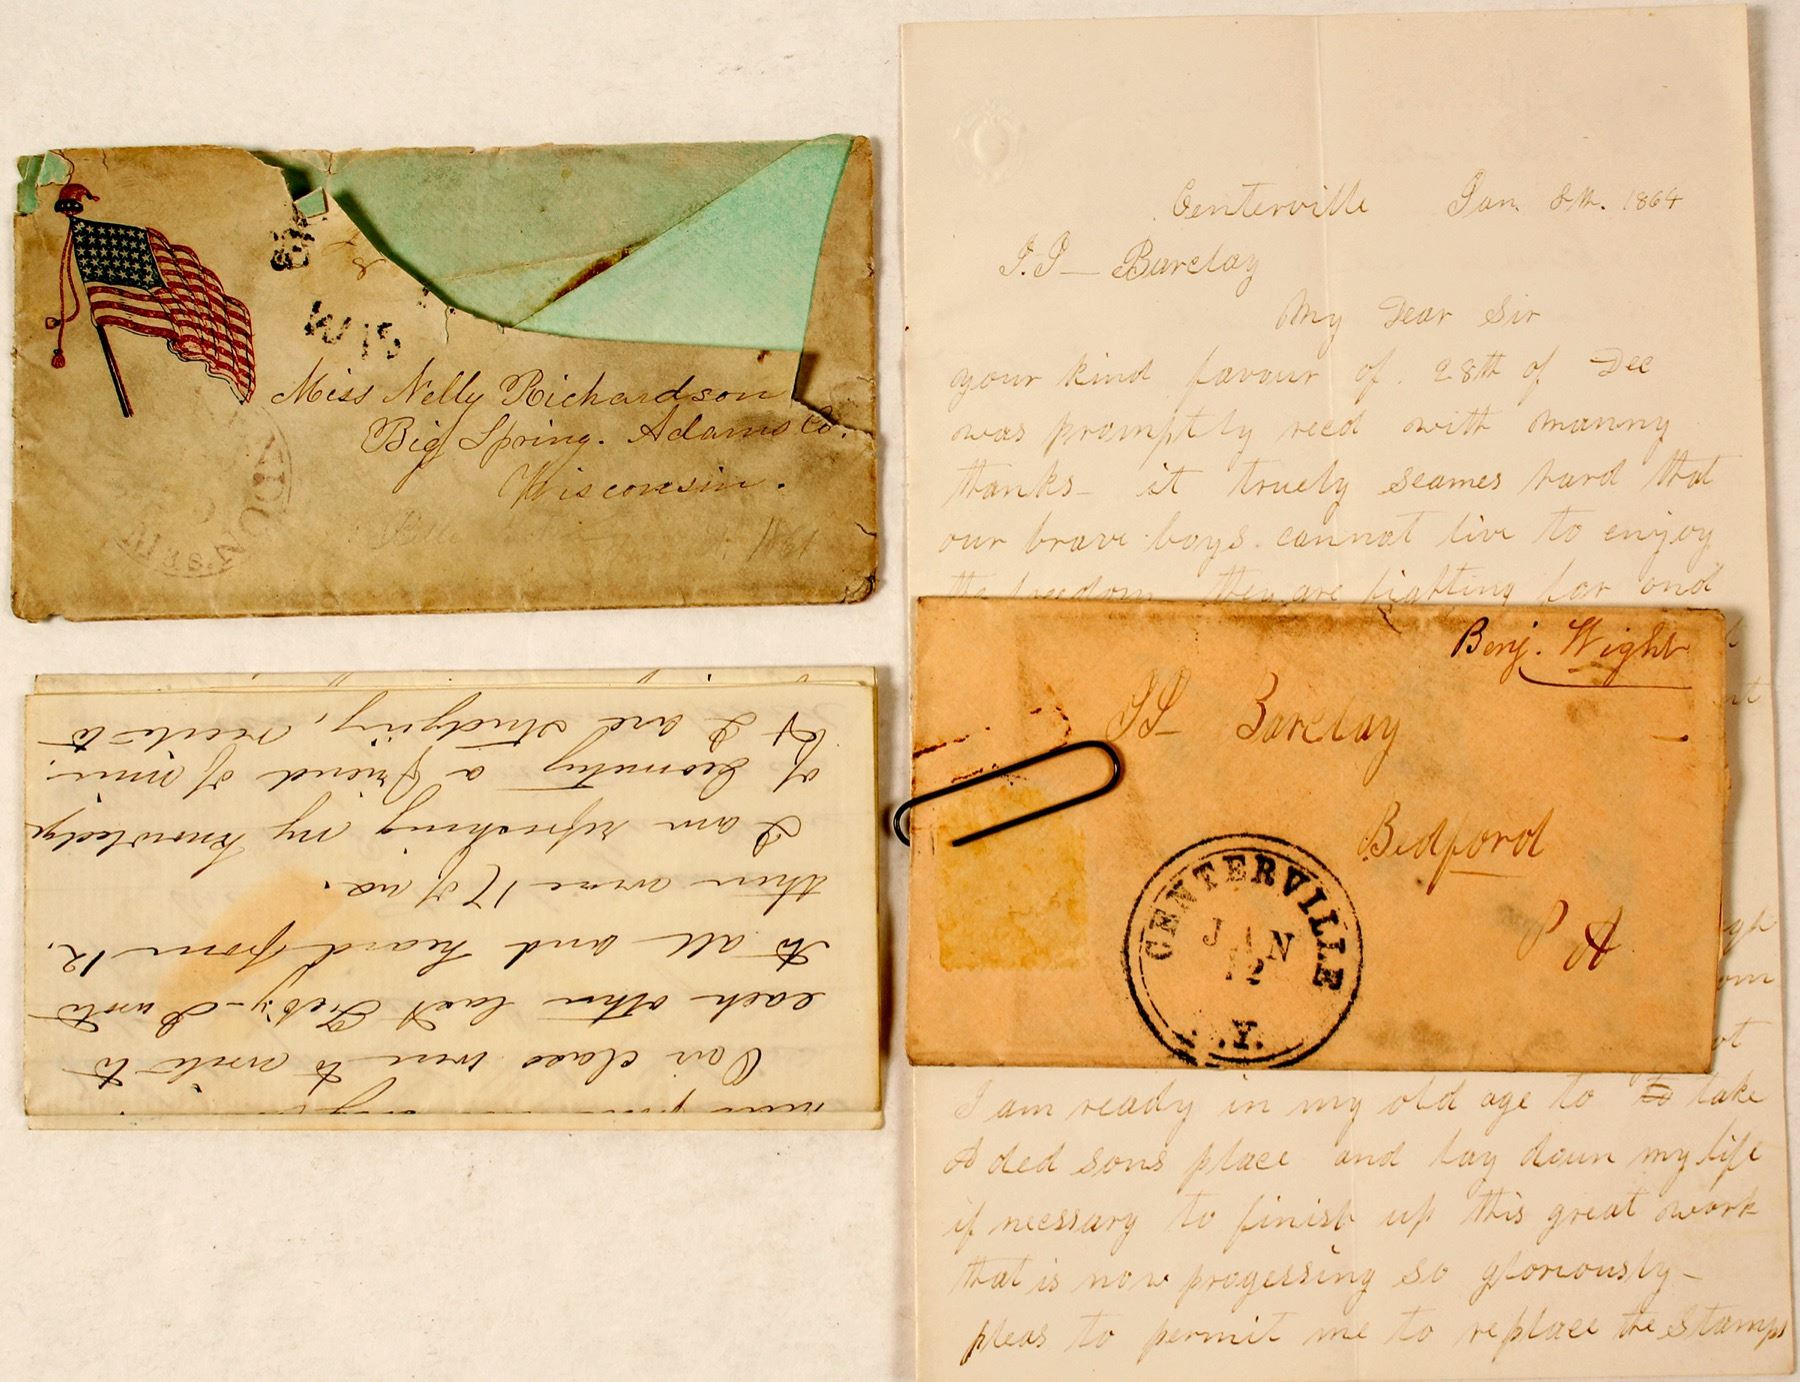 Miss Nelly Richardson
Big Spring. Adams Co.
Wisconsin.
1861
WIS
Centerville Jan. 8th. 1864
J. J— Barclay
My Dear Sir
your kind favour of. 28th of Dec
was promptly recd with manny
thanks— it truely seames hard that
our brave boys. cannot live to enjoy
the freedom they are fighting for and
Benj. Wight
Barclay
Bedford
P A
CENTERVILLE
JAN
12
.Y.
I am ready in my old age to to take
ded sons place and lay down my life
if necssary to finish up this great work
that is now progessing so gloriously—
pleas to permit me to replace the stamps
Our class were to write to
each other last Feb'y—I wrote
to all and heard from 12.
there were 17 of us.
I am refreshing my knowledge
of Geometry a friend of mine
& I are studying, recite to